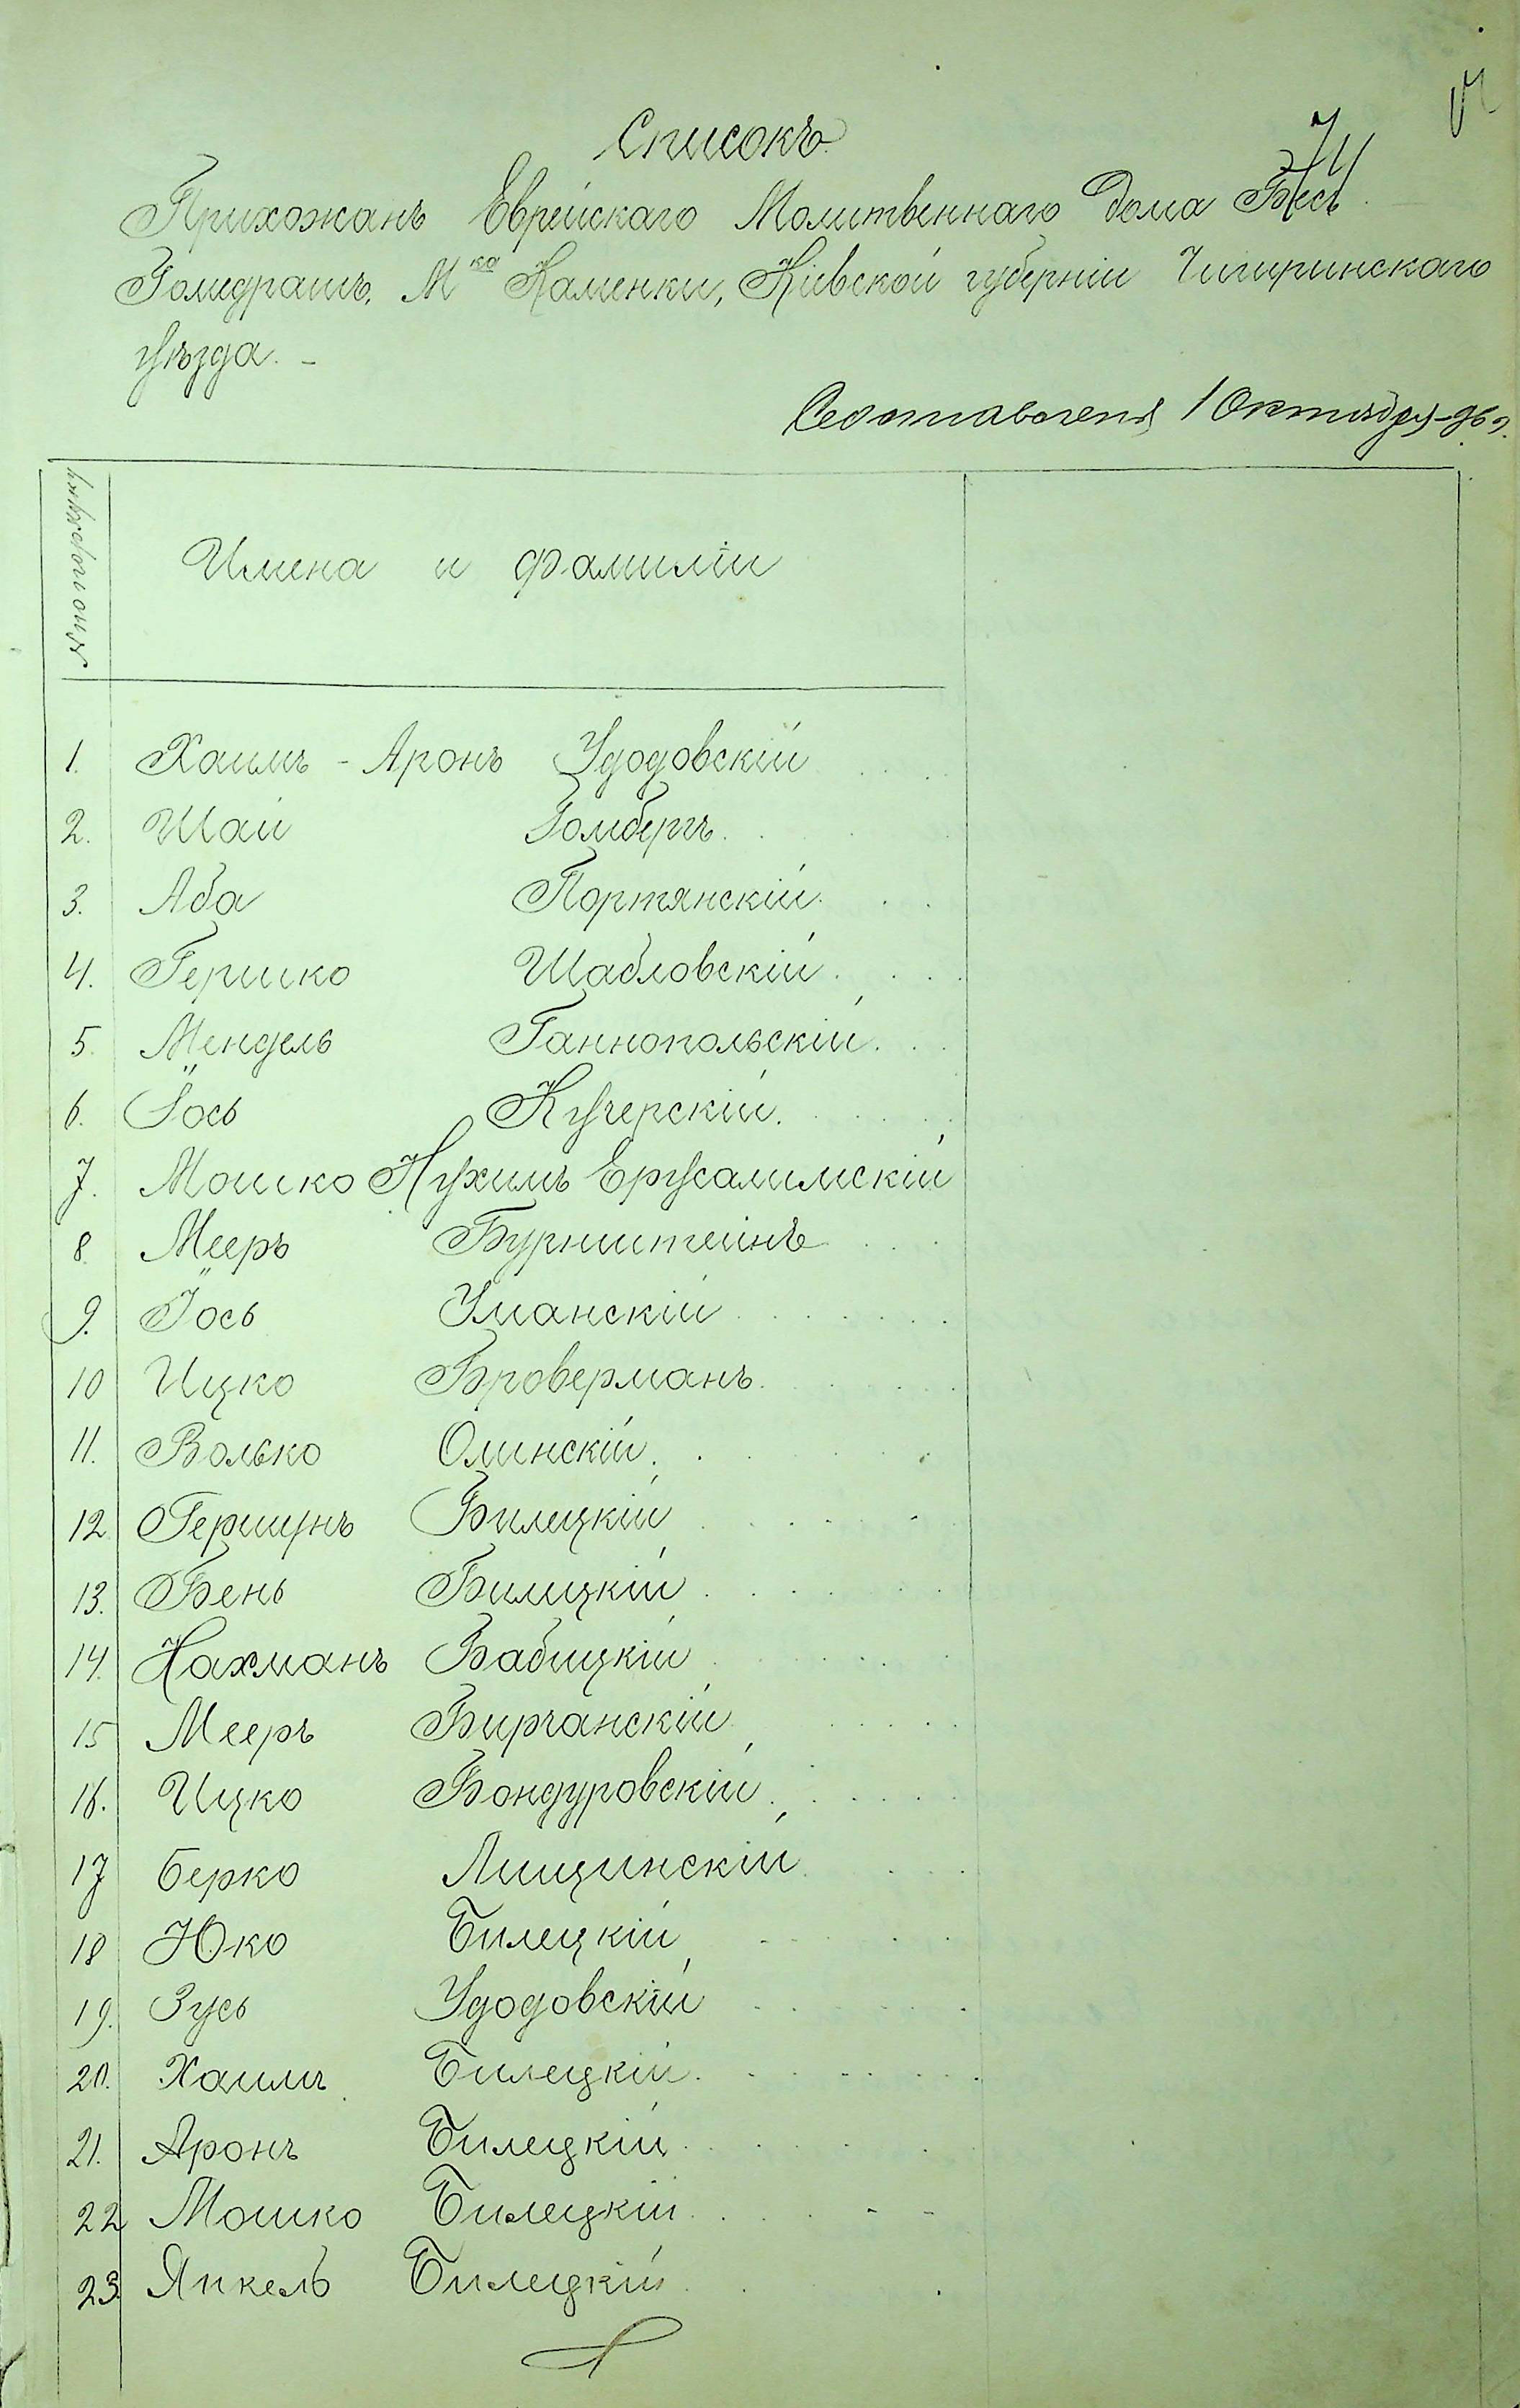 Списокъ
74
Прихожанъ Еврейскаго Молитвеннаго Дома Бес
Гомедрашъ, М-ка Каменки, Кіевской губерніи Чигиринскаго
уѣзда. -
1 Октября
Имена и Фамиліи
1. Хаимъ - Аронъ Удодовскій
2. Шаи Гомбергъ
3. Аба Портянскій
4. Гершко Шабловскій
5. Мендель Ганнопольскій
6. Іось Кучерскій
7. Мошко Нухимъ Ерусалимскій
8. Мееръ Бурштейнъ
9. Іось Уманскій
10 Ицко Броверманъ
11. Волько Олинскій
12 Гершунъ Билецкій
13. Бень Билицкій
14. Нахманъ Бабицкій
15 Мееръ Бирчанскій
16. Ицко Бондуровскій
17 Берко Лищинскій
18 Юко Билецкій
19. Зусь Удодовскій
20. Хаимъ Билецкій
21. Аронъ Билецкій
22 Мошко Билецкій
23 Янкель Билецкій